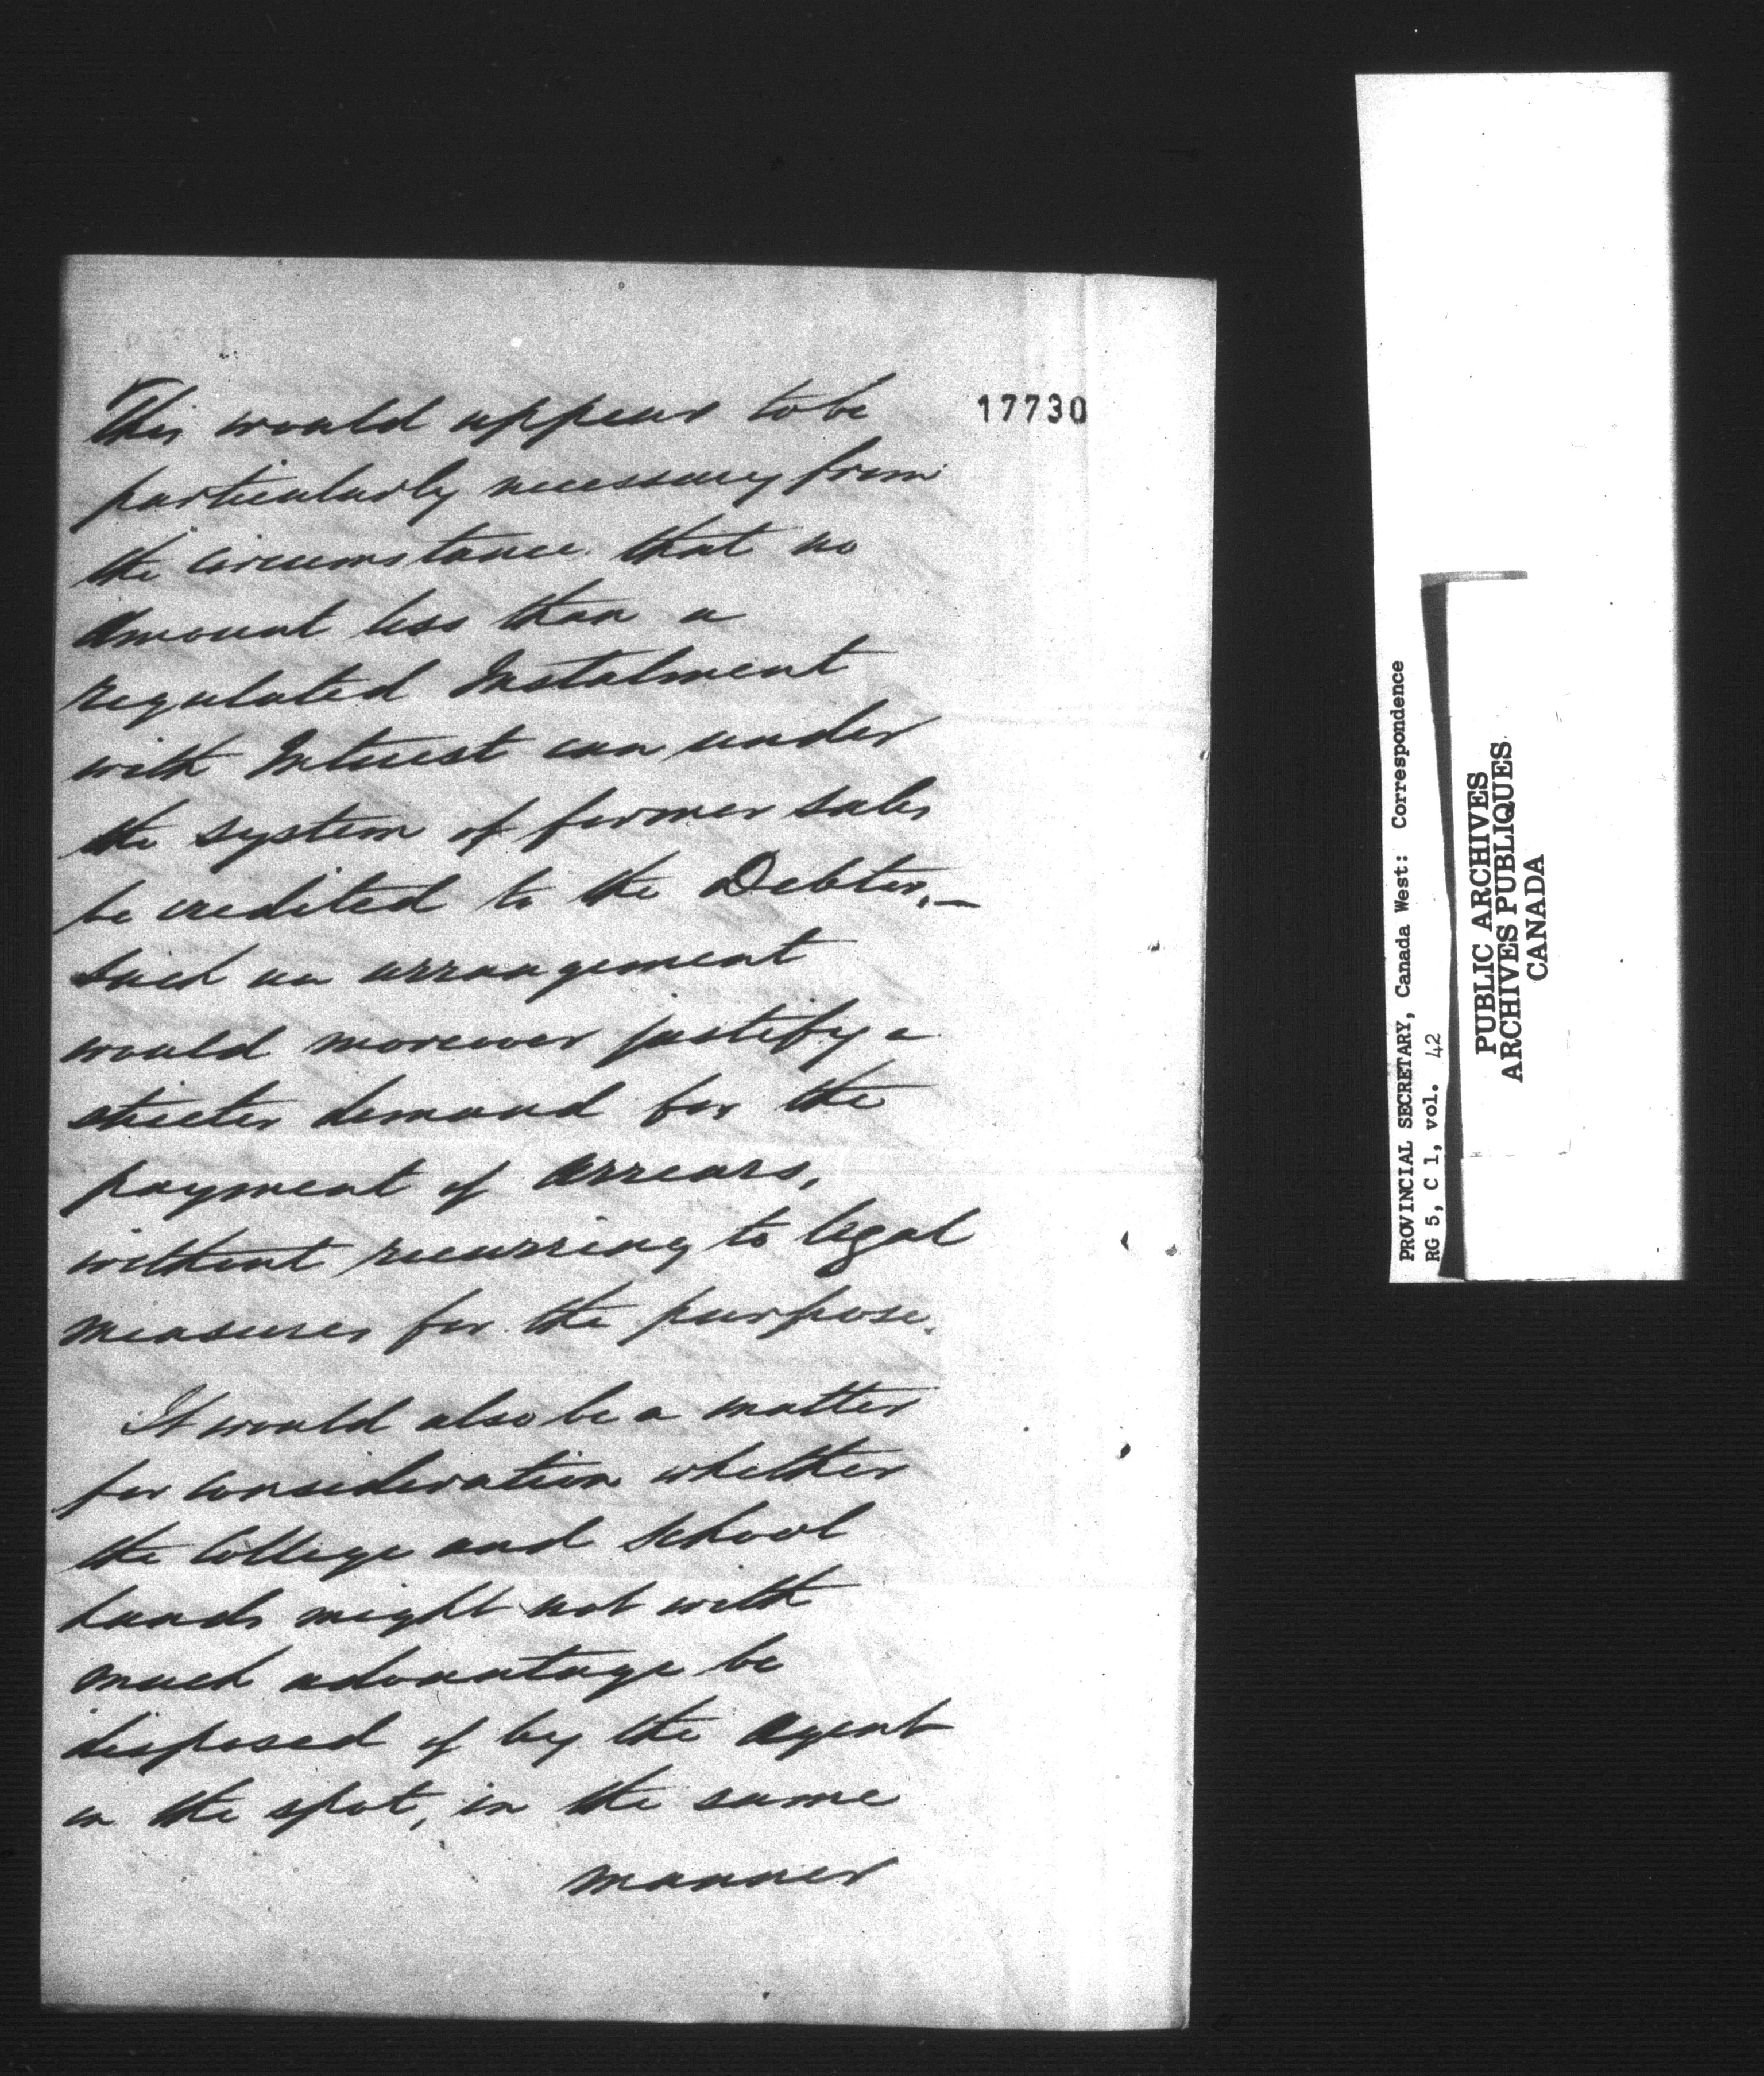 17730
This would appear to be
particularly necessary from
the circumstance that no
amount less than a
regulated Instalment
with Interest can under
the system of former sales
be credited to the Debtor,—
such an arrangement
would moreover justify a
stricter demand for the
payment of Arrears,
without recurring to legal
measures for the purpose.
It would also be a matter
for consideration whether
the College and School
lands might not with
much advantage be
disposed of by the Agent
on the spot, in the same
manner
PROVINCIAL SECRETARY, Canada West: Correspondence
RG 5, C 1, vol. 42
PUBLIC ARCHIVES
ARCHIVES PUBLIQUES
CANADA